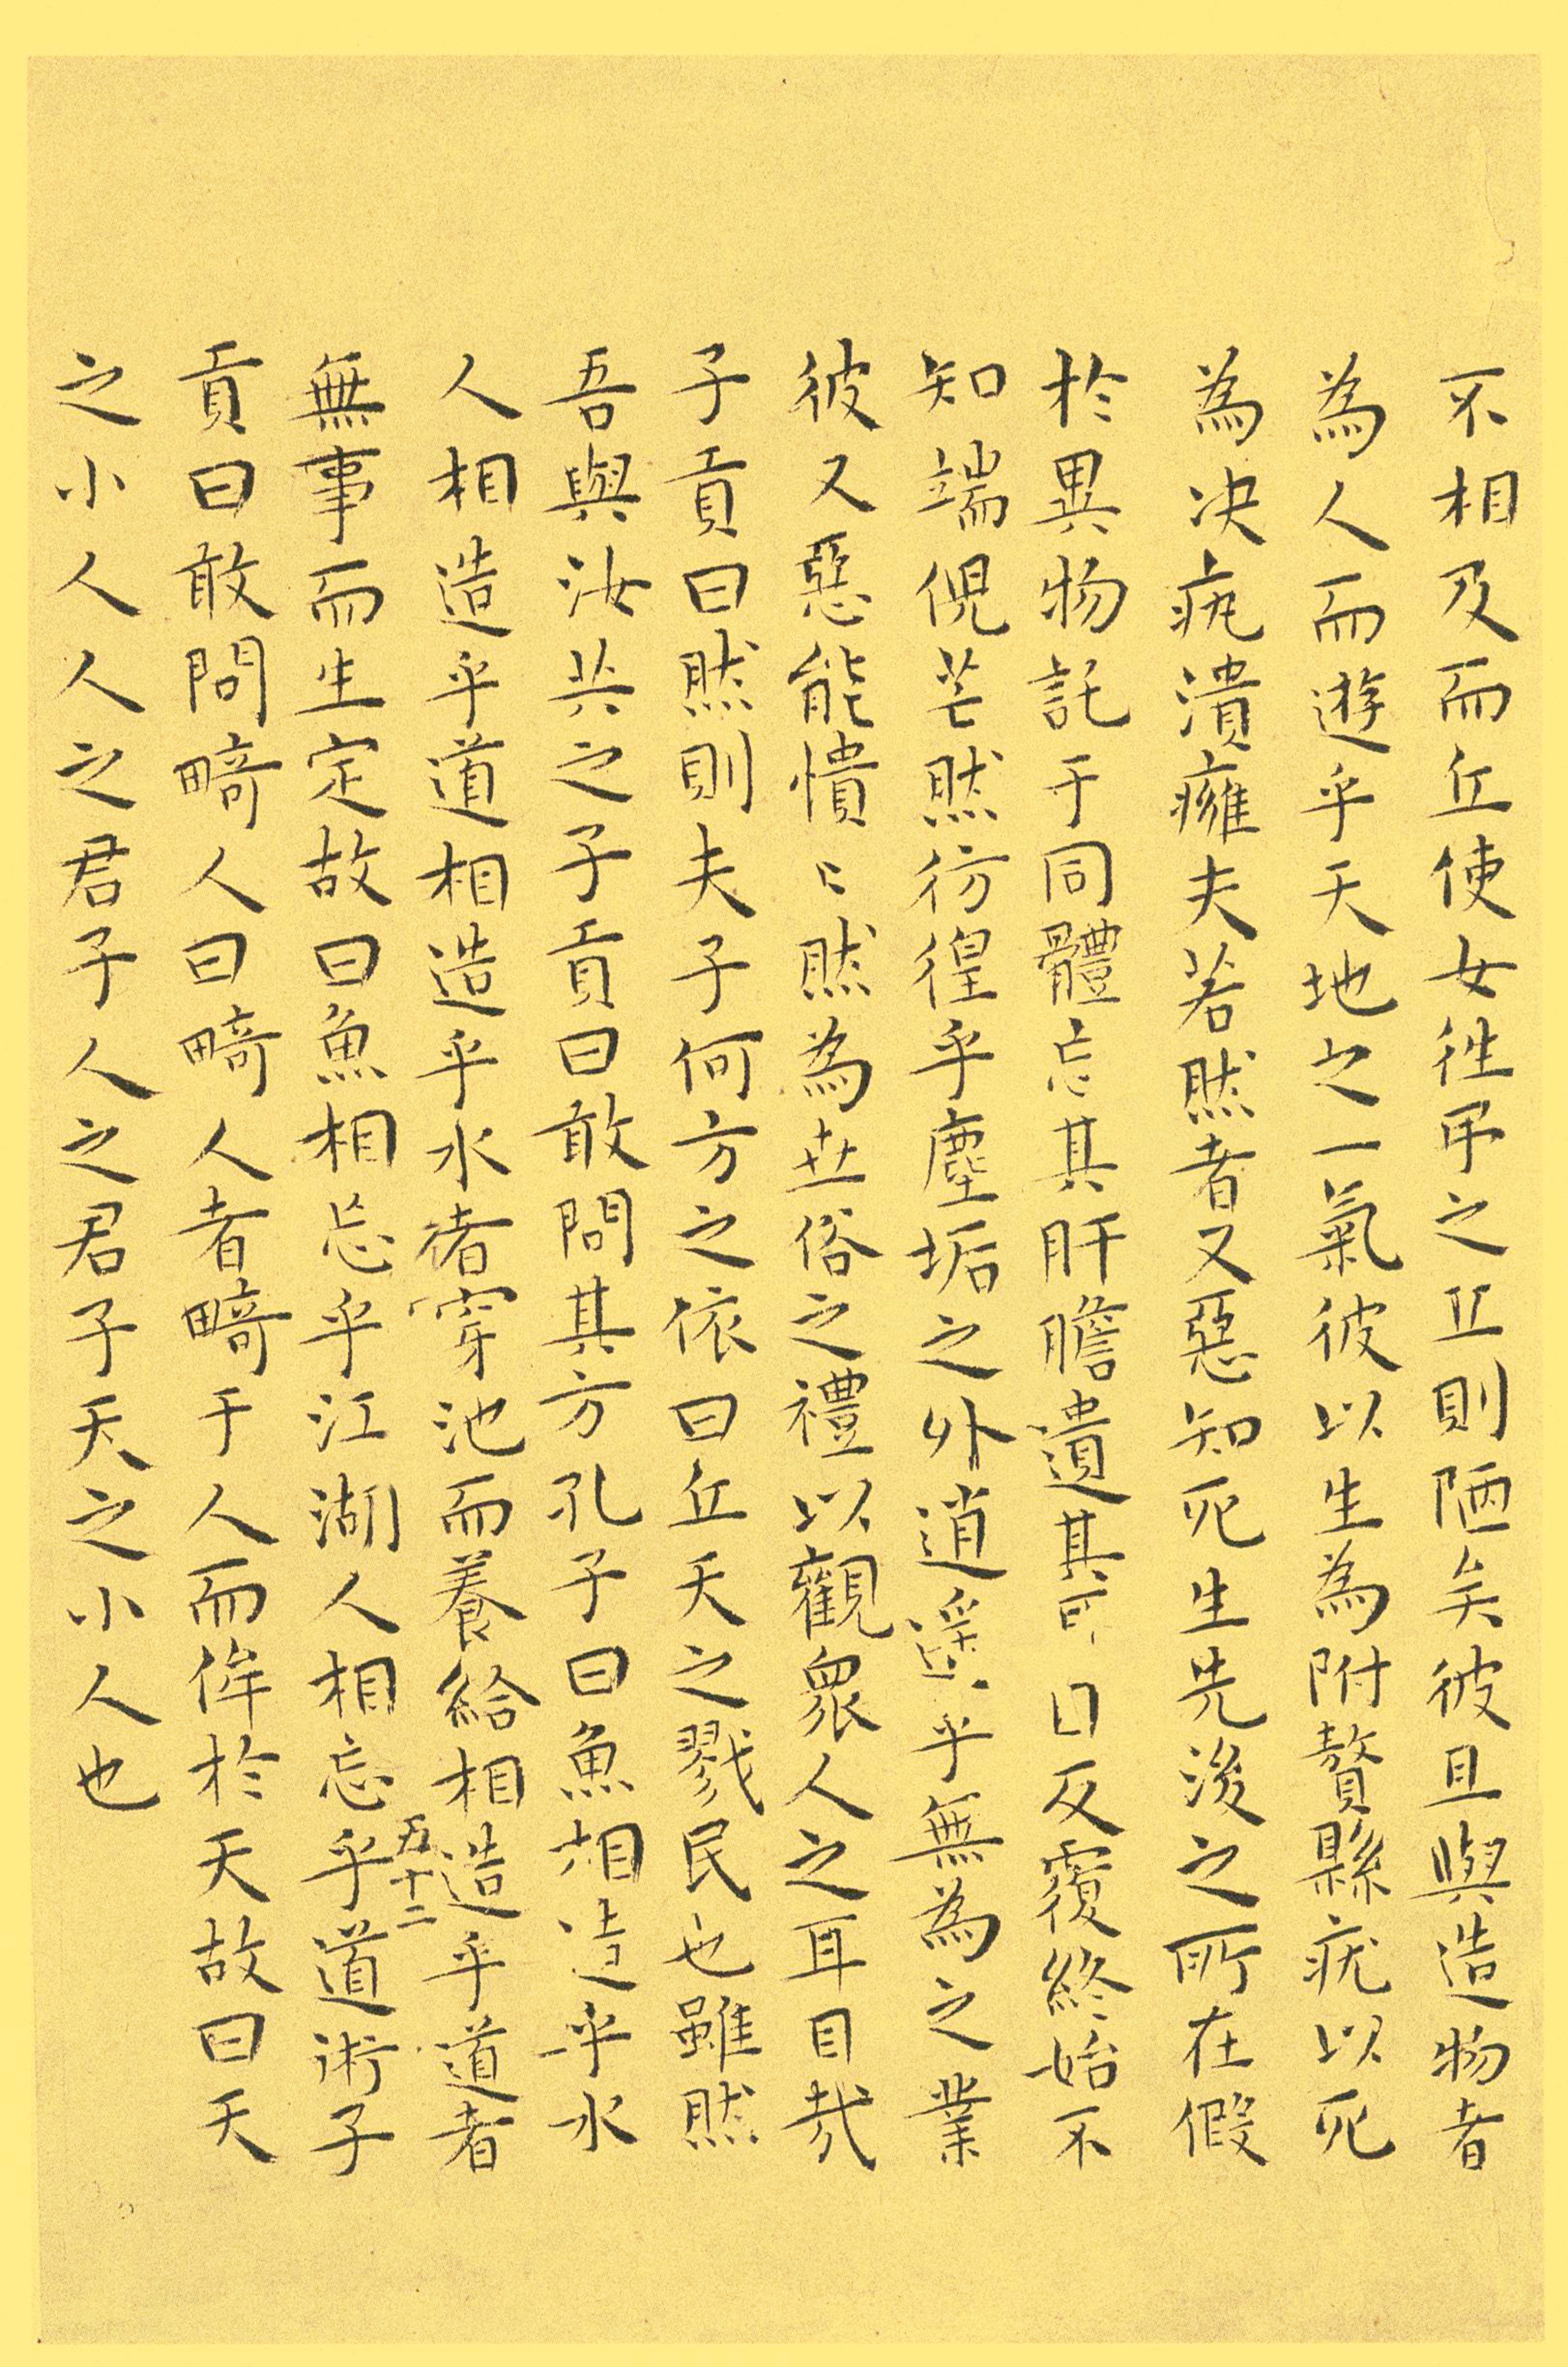 不相及而丘使女往弔之丘則陋矣彼且與造物者
為人而遊乎天地之一氣彼以生為附贅縣疣以死
為决疣潰癰夫若然者又惡知死生先後之所在假
於異物託于同體忘其肝膽遺其耳目反覆終始不
知端倪芒然彷徨乎塵垢之外逍遥乎無為之業
彼又惡能憒〻然為世俗之禮以觀衆人之耳目哉
子貢曰然則夫子何方之依曰丘天之戮民也雖然
吾與汝共之子貢曰敢問其方孔子曰魚相造乎水
人相造乎道相造乎水者穿池而養給相造乎道者
五十二
無事而生定故曰魚相忘乎江湖人相忘乎道術子
貢曰敢問畸人曰畸人者畸于人而侔於天故曰天
之小人人之君子人之君子天之小人也